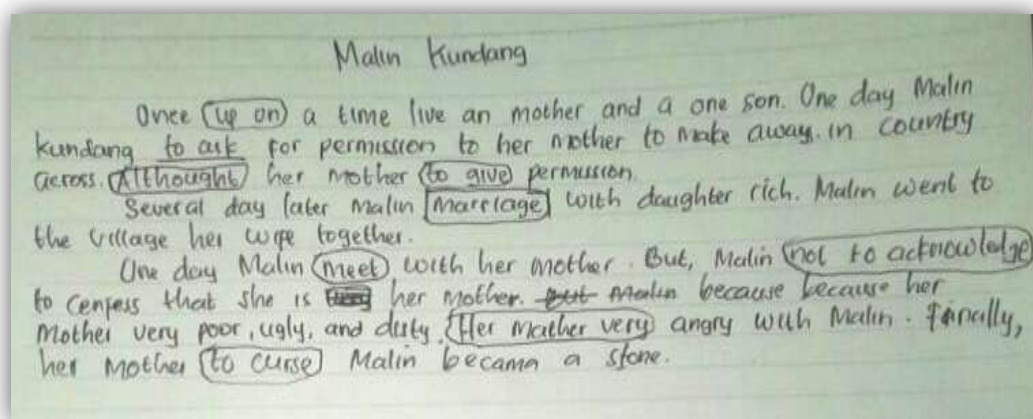 Malin Kundang
Once up on a time live an mother and a one son. One day Malin
kundang to ask for permission to her mother to make away. in country
across. Althought her mother to give permission
Several day later Malin Marriage with daughter rich. Malin went to
the village her wife together.
One day Malin meet with her mother. But, Malin not to acknowledge
to confess that she is her mother. but Malin because because her
Mother very poor, ugly, and dirty. Her mather very angry with Malin. Finally,
her Mother to curse Malin becama a stone.